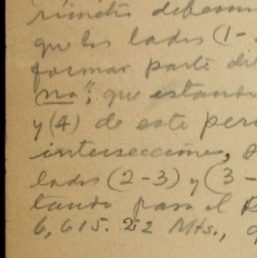 rímetro debemos
que los lados (1-
formar parte del
no", que estando
y (4) de este perí
intersecciones,
lados (2-3) y (3-
tando para el
6,615.22 Mts.,